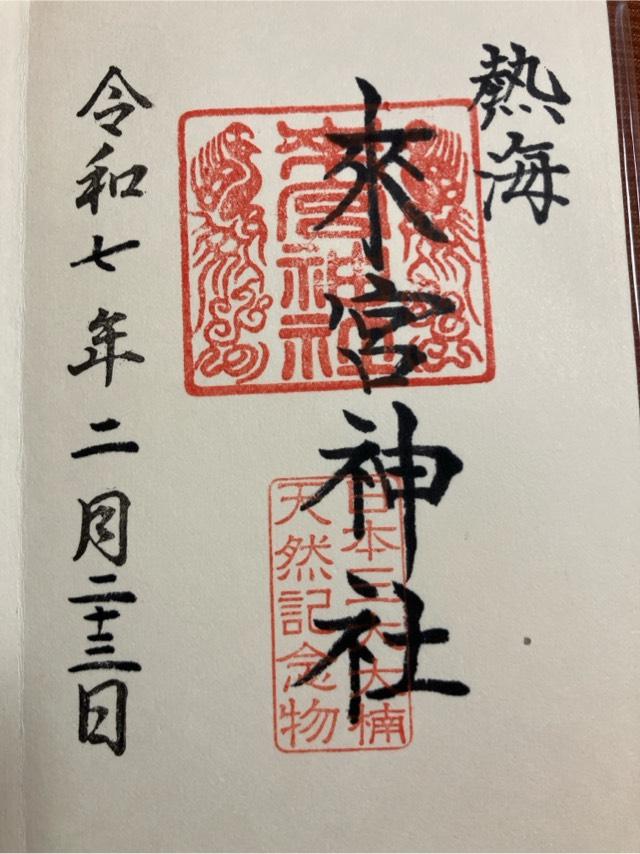 熱海
來宮神社
來宮神社
日本三大大楠
天然記念物
令和七年二月二十三日